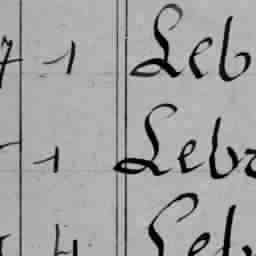 7 1 Leb
1 Lebr
4 Leb